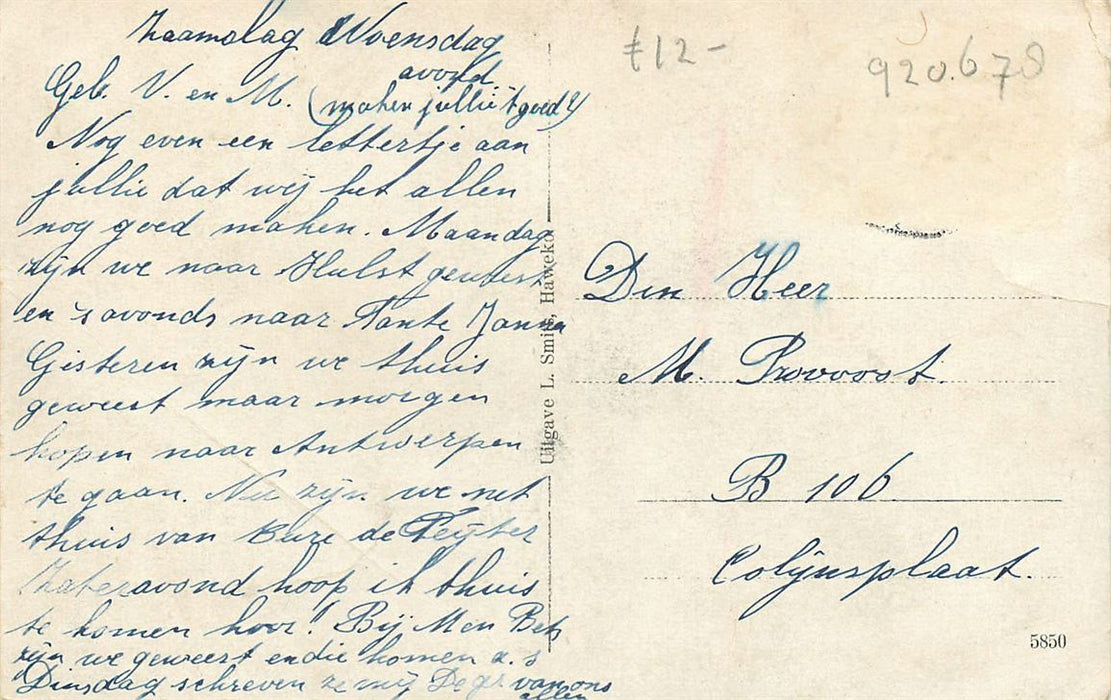 Zaamslag Woensdag
avond
Geb. V. en M. (maken jullie 't goed?)
Nog even een lettertje aan
jullie dat wij het allen
nog goed maken. Maandag
zijn we naar Hulst geweest
en 's avonds naar Tante Janna
Gisteren zijn we thuis
geweest maar morgen
hopen naar Antwerpen
te gaan. Nu zijn we net
thuis van Bure de Feijter
Zateravond hoop ik thuis
te komen hoor! Bij M en Bets
zijn we geweest en die komen a.s
Dinsdag schreven ze mij De gr van ons
allen
Uitgave L. Smits, Haweko
£12-
920.678
Den Heer
M. Provoost.
B 106
Colijnsplaat.
5850